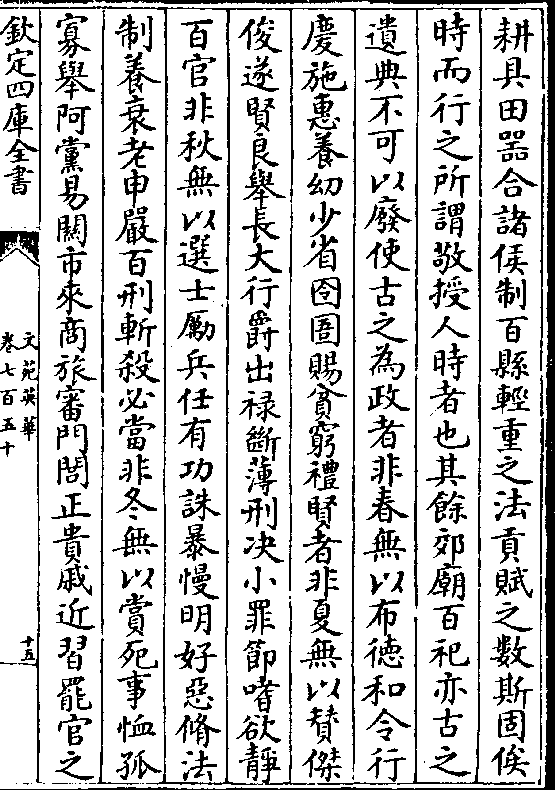 耕具田器合諸侯制百縣輕重之法貢賦之數斯固俟
時而行之所謂敬授人時者也其餘郊廟百祀亦古之
遺典不可以廢使古之為政者非春無以布徳和令行
慶施惠養幼少省囹圄賜貧窮禮賢者非夏無以賛傑
俊遂賢良舉長大行爵出祿斷薄刑决小罪節嗜欲靜
百官非秋無以選士厲兵任有功誅暴慢明好惡脩法
制養衰老申嚴百刑斬殺必當非冬無以賞死事恤孤
寡舉阿黨易關市來商旅審門閭正貴戚近習罷官之
欽定四庫全書
文苑英華
卷七百五十
十五